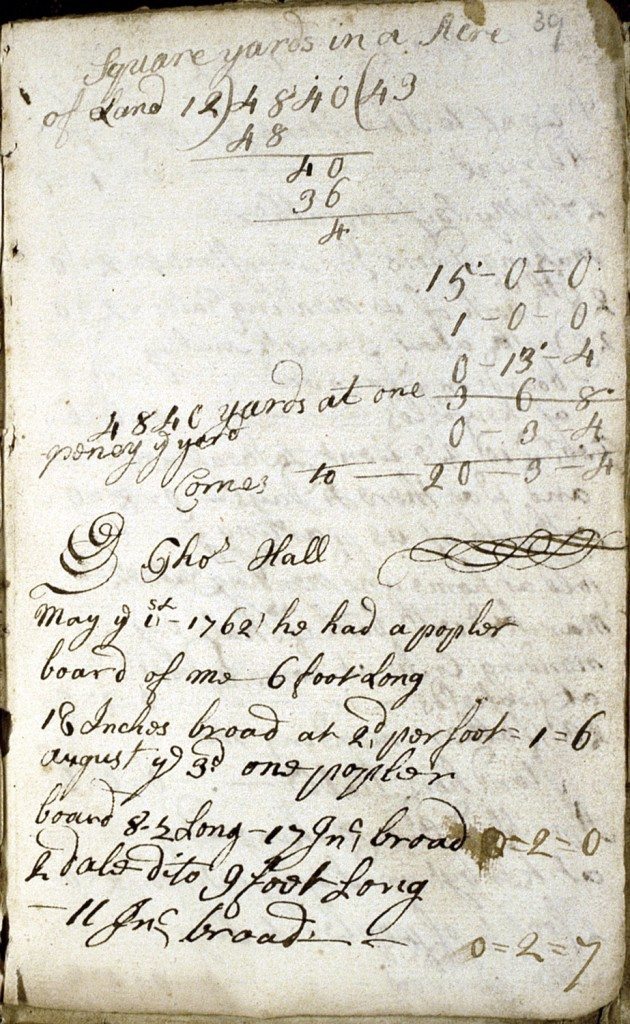 39
Square yards in a Acre
of Land 12) 4840 (43
48
40
36
4
15 - 0 - 0
1 - 0 - 0
0 - 13 - 4
4840 yards at one 3 6 8
peney ye yard 0 - 3 - 4
Comes to — 20 - 3 - 4
Thos Hall
May ye 1st - 1762 he had a popler
board of me 6 foot Long
18 Inches broad at 2d per foot = 1 = 6
august ye 3d one popler
board 8-2 Long - 17 Ins broad 0 = 2 = 0
2 dale dito 9 foet Long
- 11 Ins broad - - 0 = 2 = 7